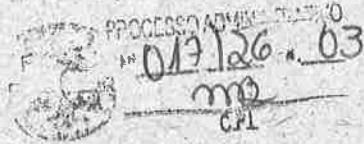 PROCESSO ADMINISTRATIVO
Nº 017/26.03
CPL